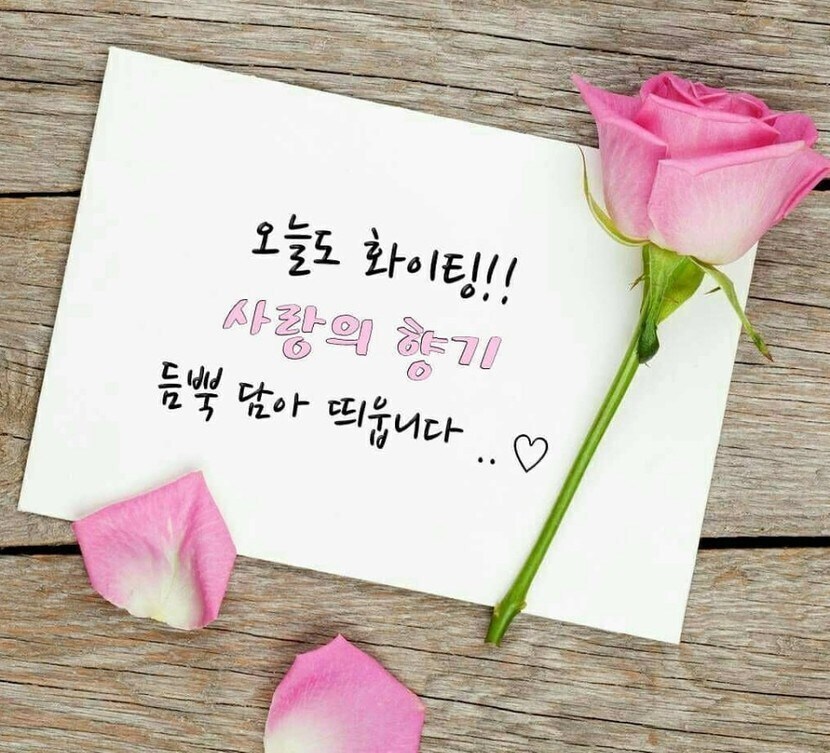 오늘도 화이팅!!
사랑의 향기
듬뿍 담아 띄웁니다 .. ♡